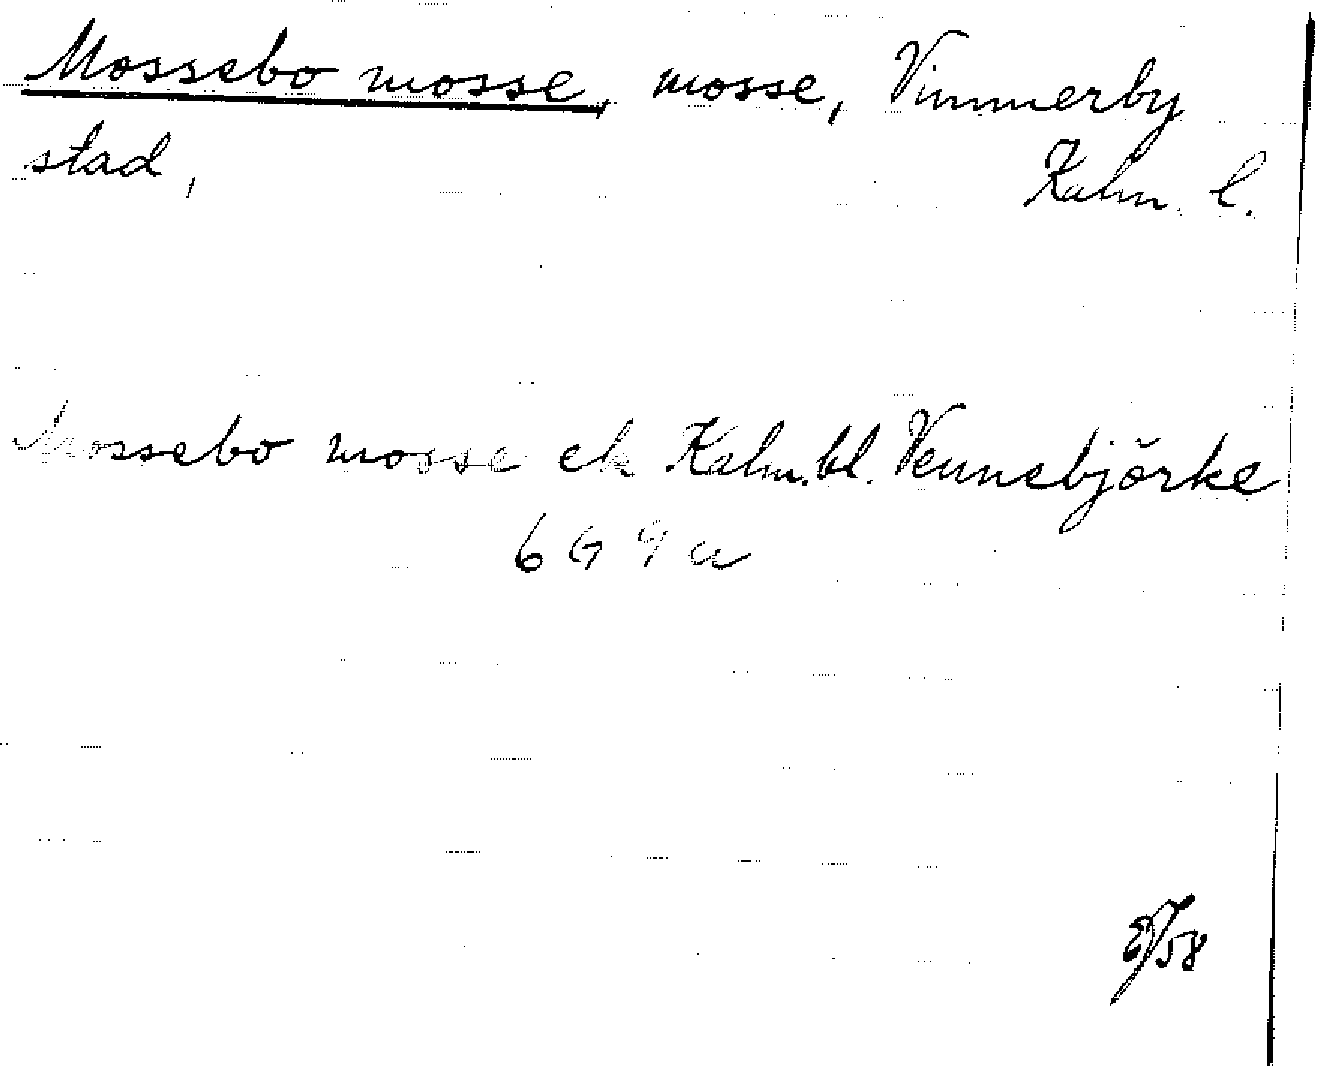 Mossebo mosse, mosse, Vimmerby
stad, Kalm. l.
Mossebo mosse ek Kalm.bl. Vennebjörke
6 G 9 a
58